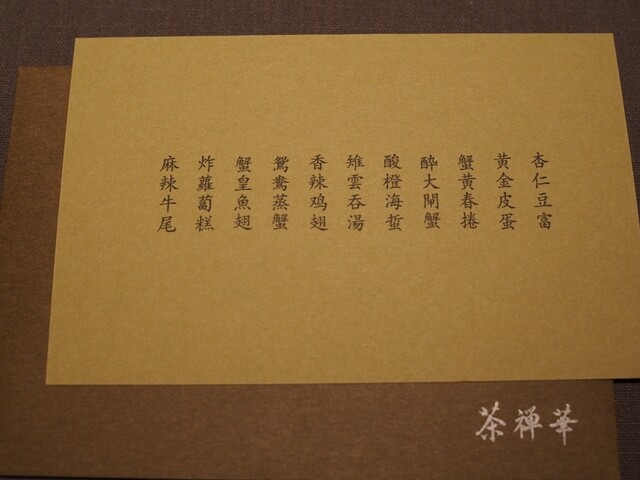 杏仁豆富
黄金皮蛋
蟹黄春捲
酔大閘蟹
酸橙海蜇
雉雲呑湯
香辣鸡翅
鴛鴦蒸蟹
蟹皇魚翅
炸蘿蔔糕
麻辣牛尾
茶禅華